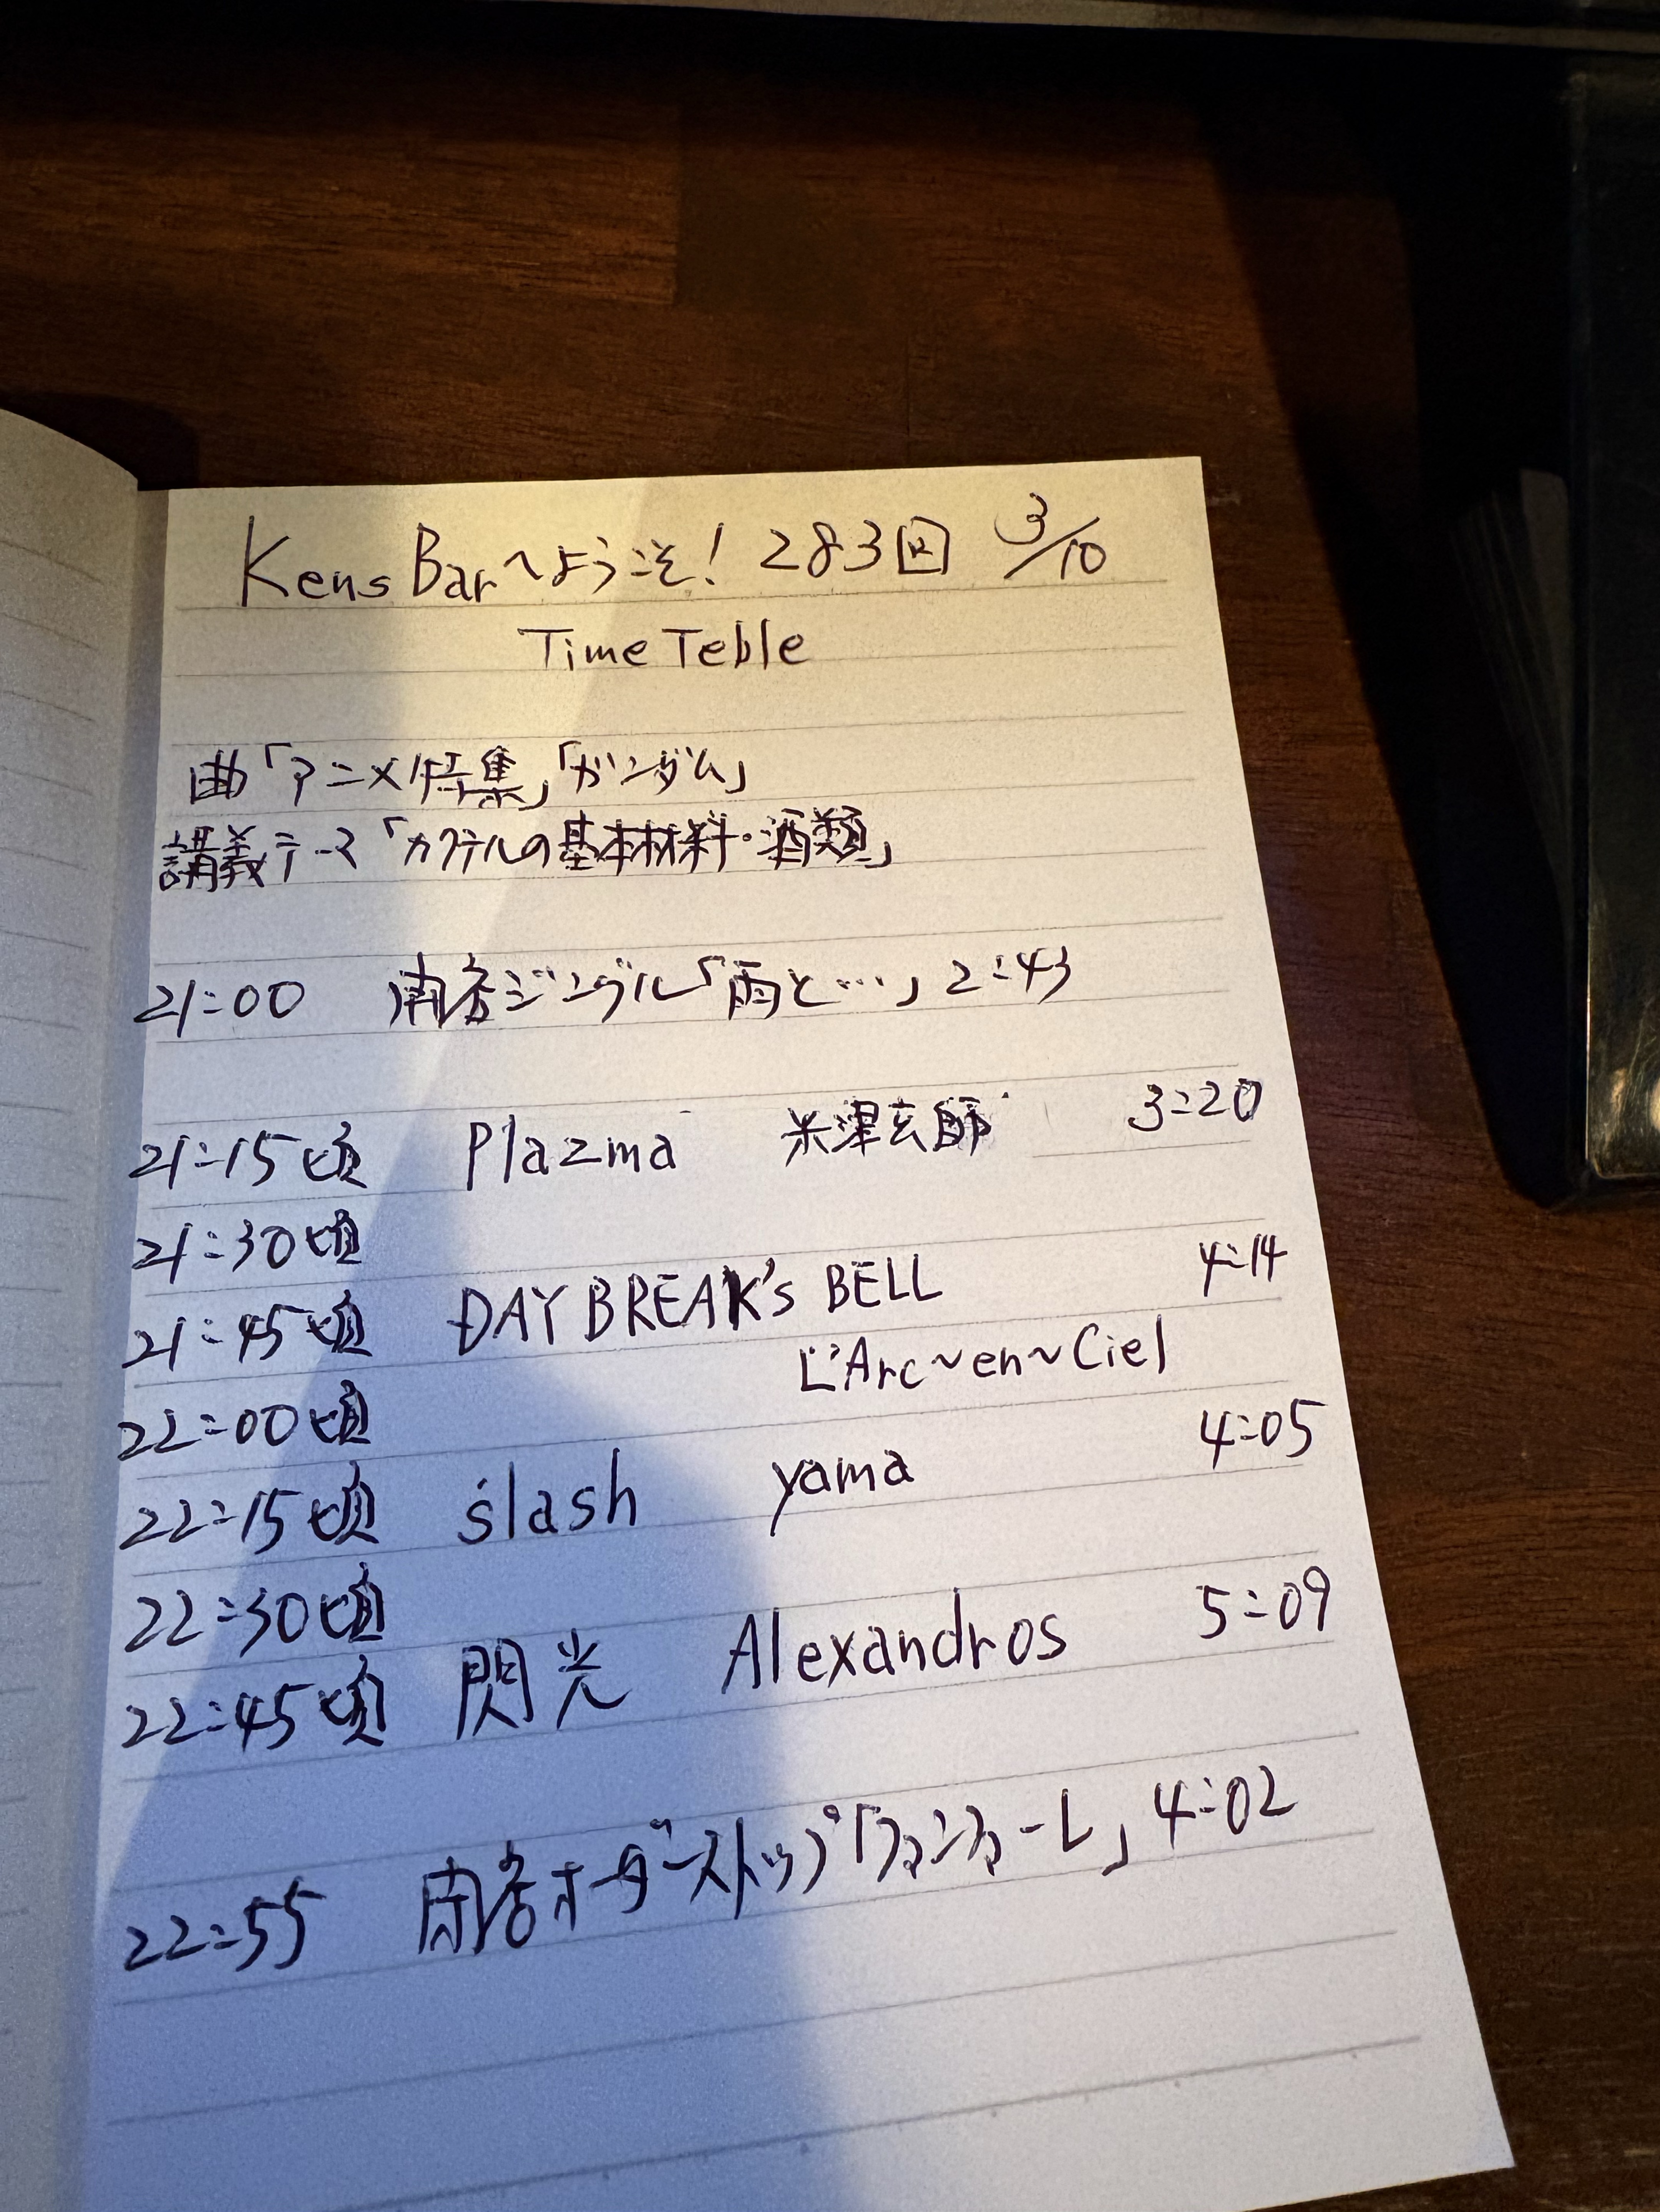 Kens Barへようこそ! 283回 3/10
Time Teble
曲「アニメ特集」「ガンダム」
講義テーマ「カクテルの基本材料・酒類」
21:00 南呑ジングル「雨と…」2:43
21:15頃 Plazma 米津玄師 3:20
21:30頃
21:45頃 DAYBREAK's BELL 4:14
L'Arc~en~Ciel
22:00頃
22:15頃 slash yama 4:05
22:30頃
22:45頃 閃光 Alexandros 5:09
22:55 南呑オーダーストップ「ファンファーレ」4:02